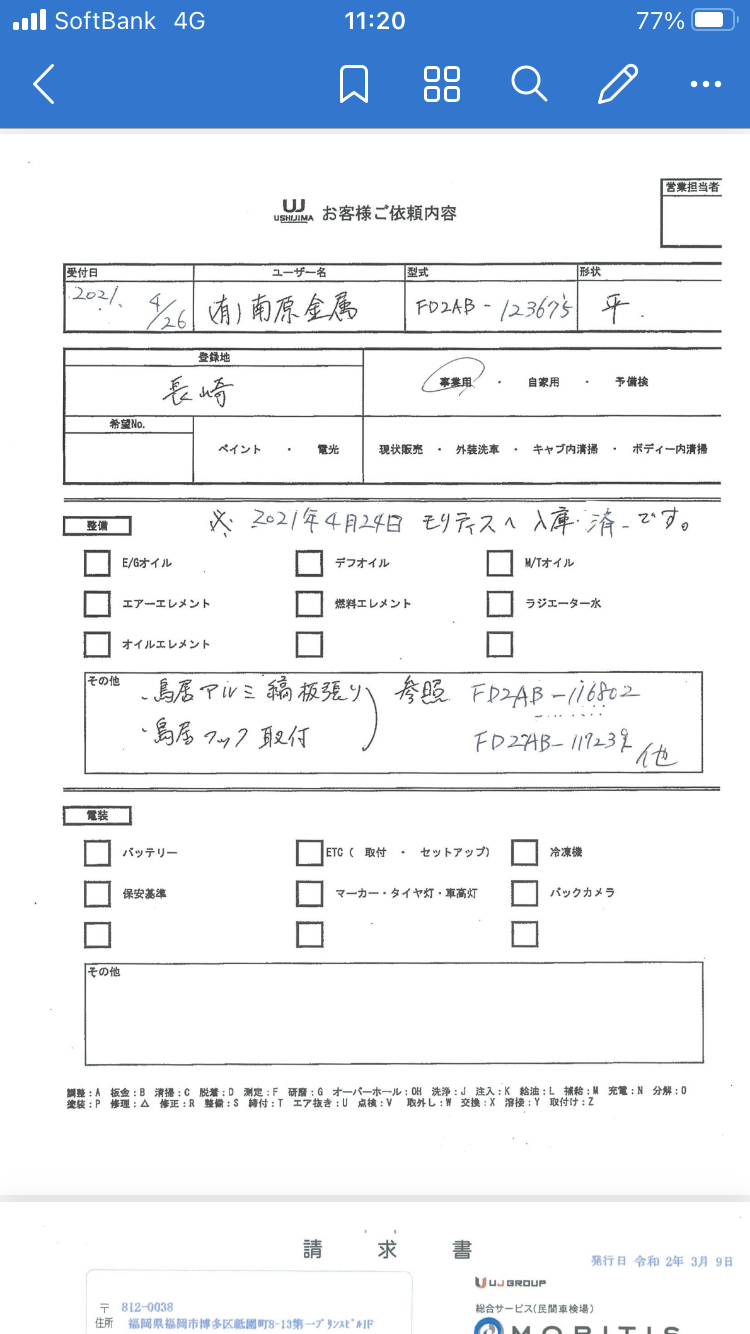 SoftBank 4G 11:20 77%
営業担当者
UJ USHIJIMA お客様ご依頼内容
受付日 ユーザー名 型式 形状
2021. 4/26 (有)南原金属 FD2AB-123675 平.
登録地
長崎 事業用 ・ 自家用 ・ 予備検
希望No.
ペイント ・ 電光 現状販売 ・ 外装洗車 ・ キャブ内清掃 ・ ボディー内清掃
整備 ※ 2021年4月24日 モリティスへ入庫済です。
E/Gオイル デフオイル M/Tオイル
エアーエレメント 燃料エレメント ラジエーター水
オイルエレメント
その他 ・鳥居アルミ縞板張り 参照 FD2AB-116802
・鳥居フック取付 FD2AB-117239 他
電装
バッテリー ETC( 取付 ・ セットアップ) 冷凍機
保安基準 マーカー・タイヤ灯・車高灯 バックカメラ
その他
調整:A 板金:B 清掃:C 脱着:D 測定:F 研磨:G オーバーホール:OH 洗浄:J 注入:K 給油:L 補給:M 充電:N 分解:O
塗装:P 修理:△ 修正:R 整備:S 締付:T エア抜き:U 点検:V 取外し:W 交換:X 溶接:Y 取付け:Z
請 求 書
発行日 令和 2年 3月 9日
UJ GROUP
〒 812-0038
総合サービス(民間車検場)
住所 福岡県福岡市博多区祇園町8-13第一プリンスビル1F
MORITIS